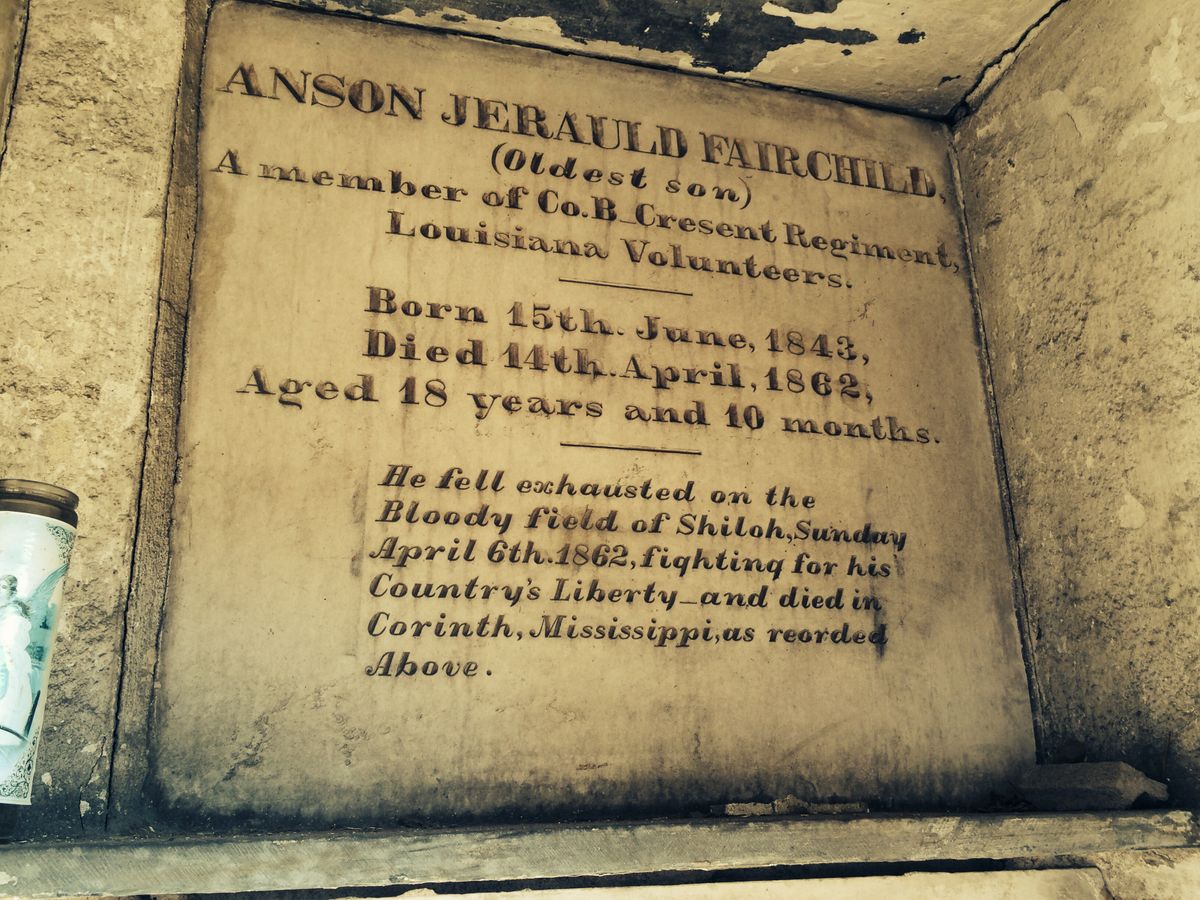 ANSON JERAULD FAIRCHILD,
(Oldest son)
A member of Co. B_Cresent Regiment,
Louisiana Volunteers.
Born 15th. June, 1843,
Died 14th. April, 1862,
Aged 18 years and 10 months.
He fell exhausted on the
Bloody field of Shiloh, Sunday
April 6th. 1862, fighting for his
Country's Liberty_and died in
Corinth, Mississippi, as reorded
Above.